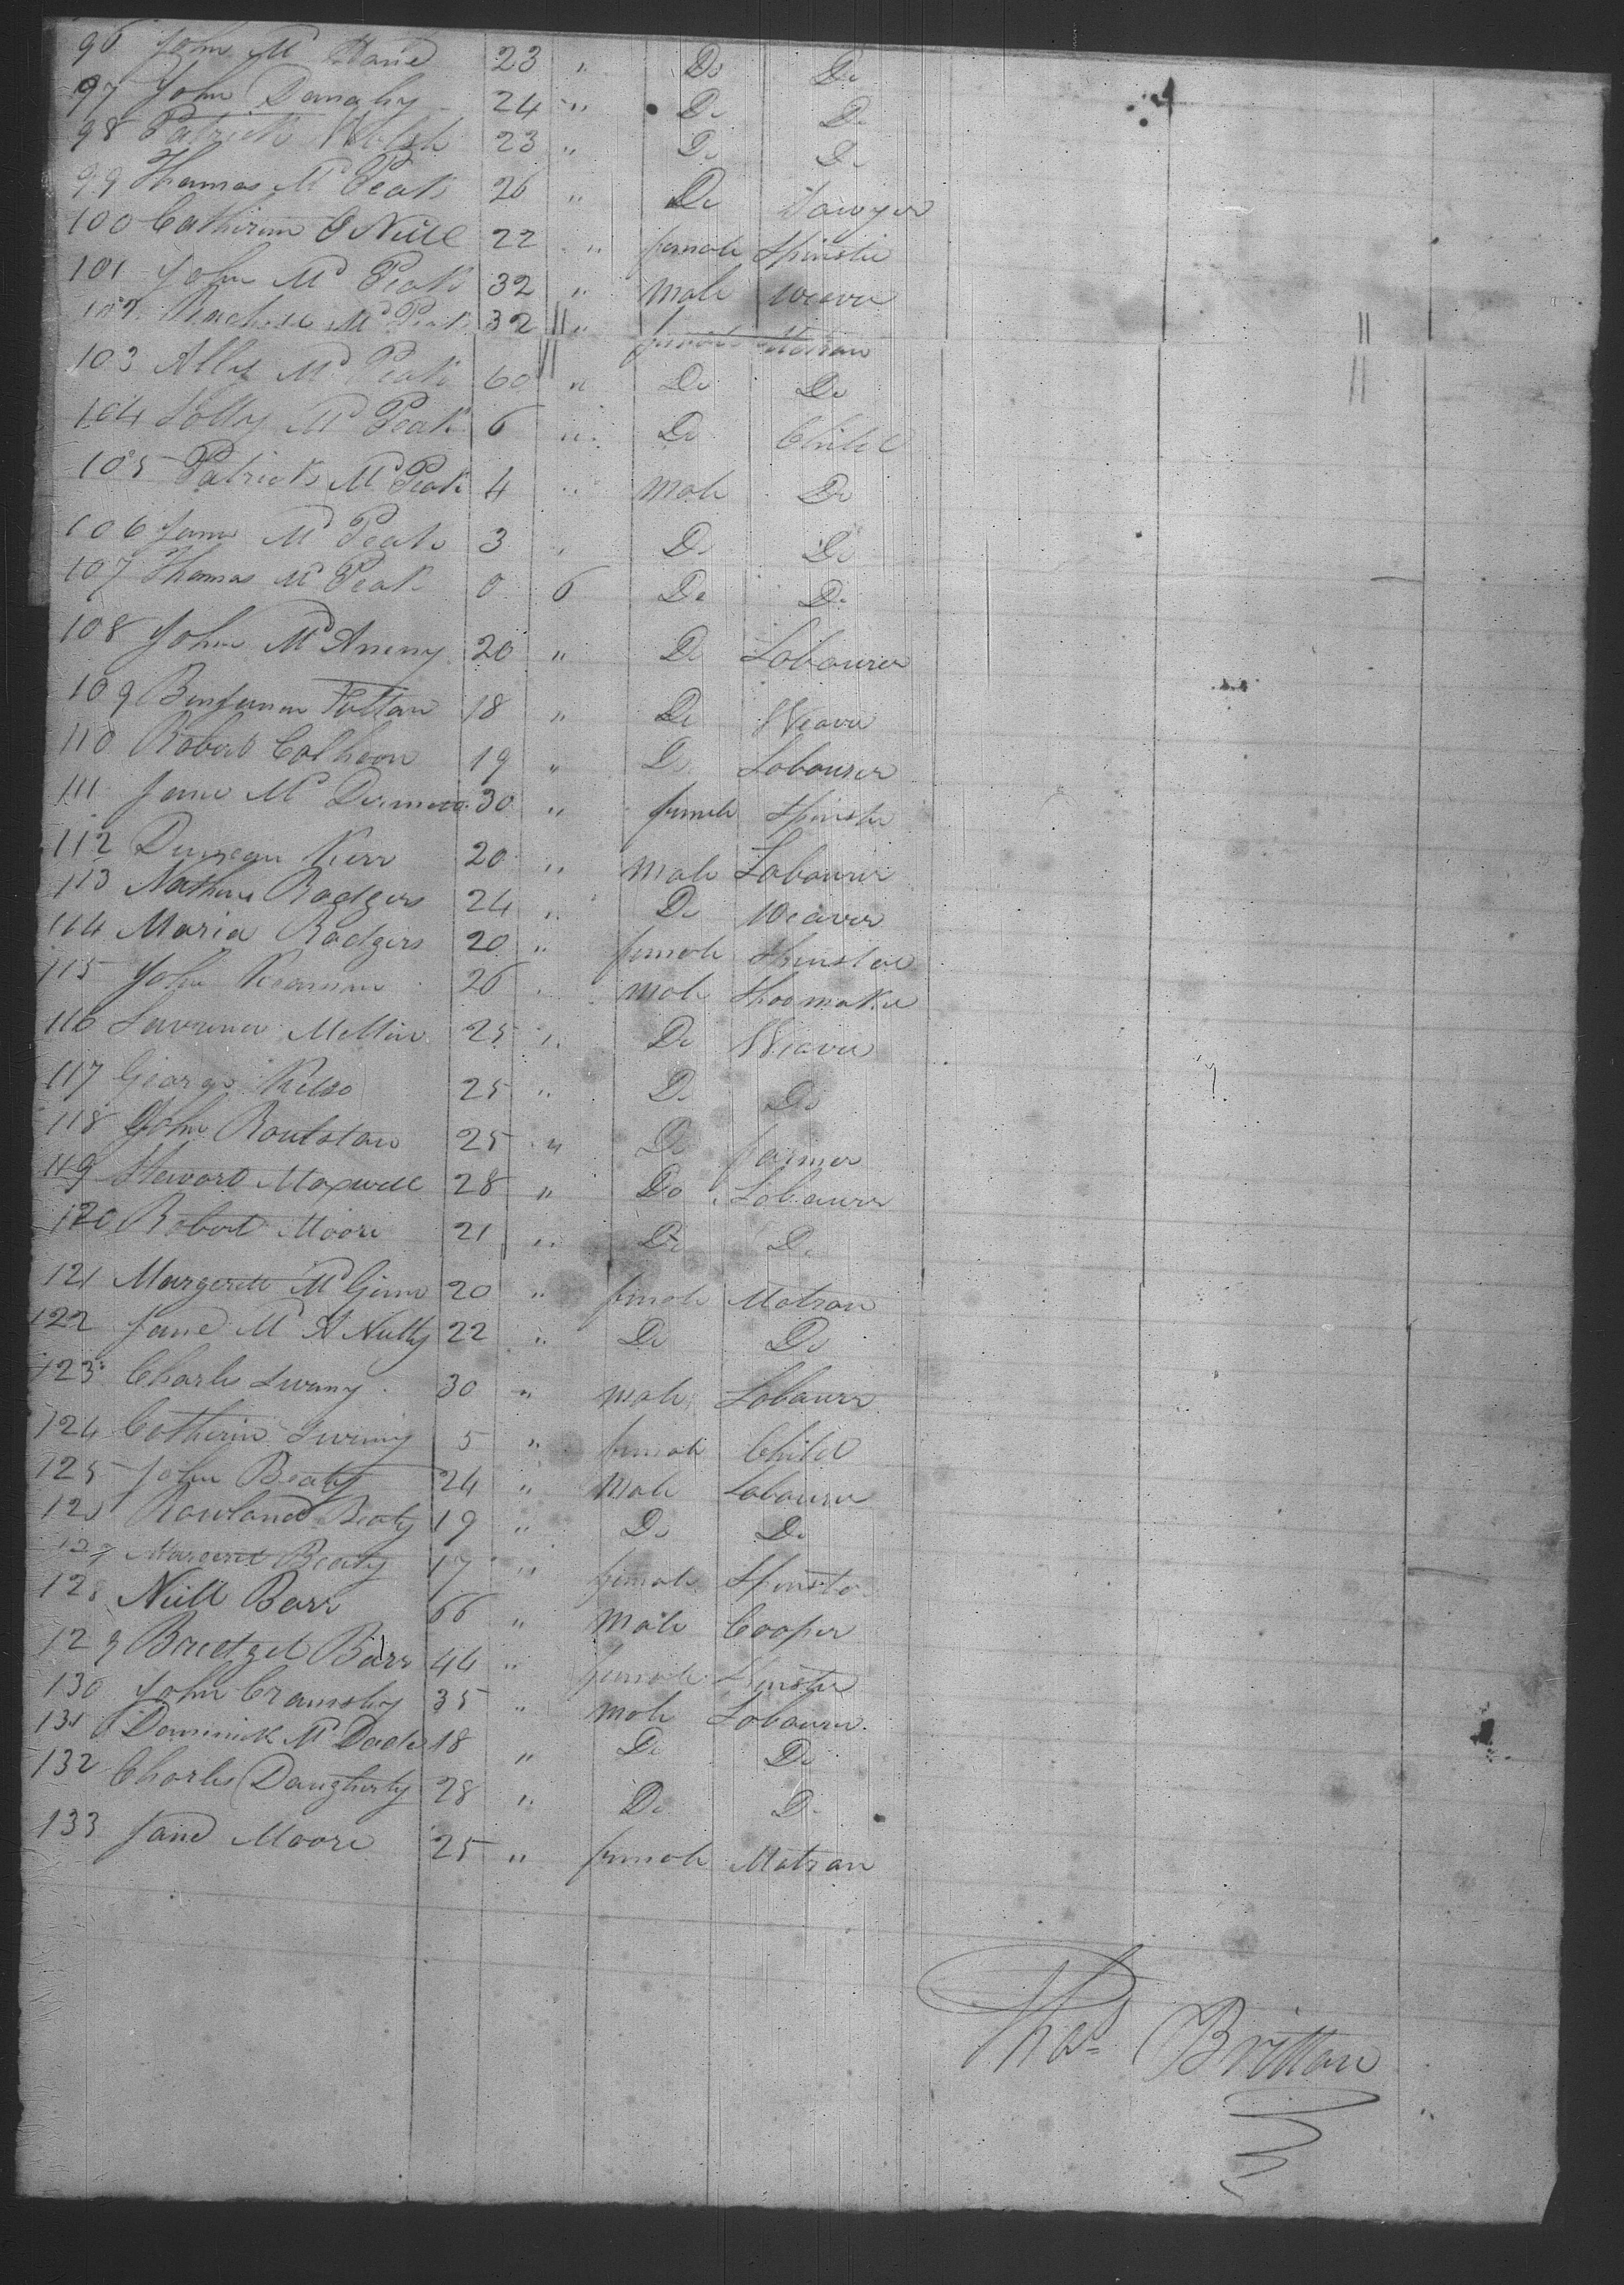 96 John Mc Kane 23 " Do Do
97 John Danaghy 24 " Do Do
98 Patrick Walsh 23 " Do Do
99 Thomas Mc Peak 26 " Do Sawyer
100 Catherine O Neill 22 " female Spinster
101 John Mc Peak 32 " Male Weaver
102 Rachell Mc Peak 32 " female Matron
103 Ally Mc Peak 60 " Do Do
104 Mc Peak 6 " Do Child
105 Patrick Mc Peak 4 " Male Do
106 Mc Peak 3 " Do Do
107 Thomas Mc Peak 0 6 Do Do
108 John Mc Aneny 20 " Do Labourer
109 Benjamin 18 " Do Weaver
110 Robert Calhoon 19 " Do Labourer
111 Jane Mc 30 " female Spinster
112 Kerr 20 " Male Labourer
113 Rodgers 24 " Do Weaver
114 Maria Rodgers 20 " female Spinster
115 John 26 " Male Shoemaker
116 Mellin 25 " Do Weaver
117 George Kelso 25 " Do Do
118 John Roulstan 25 " Do farmer
119 Steward Maxwell 28 " Do Labourer
120 Robert Moore 21 " Do Do
121 Margerett Mc Ginn 20 " female Matron
122 Jane Mc A Nulty 22 " Do Do
123 Charles 30 " male Labourer
124 5 " female Child
125 John Beaty 24 " Male Labourer
126 Rowland Beaty 19 " Do Do
127 Margeret Beaty 17 " female Spinster
128 Neill Barr 66 " Male Cooper
129 Bredget Barr 44 " female Spinster
130 John Cramsby 35 " Male Labourer
131 Daminick Mc Dade 18 " Do Do
132 Charles Daugherty 28 " Do Do
133 Jane Moore 25 " female Matron
Thos Brittan